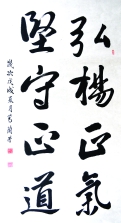 弘楊正氣
堅守正道
歲次戊戌夏月